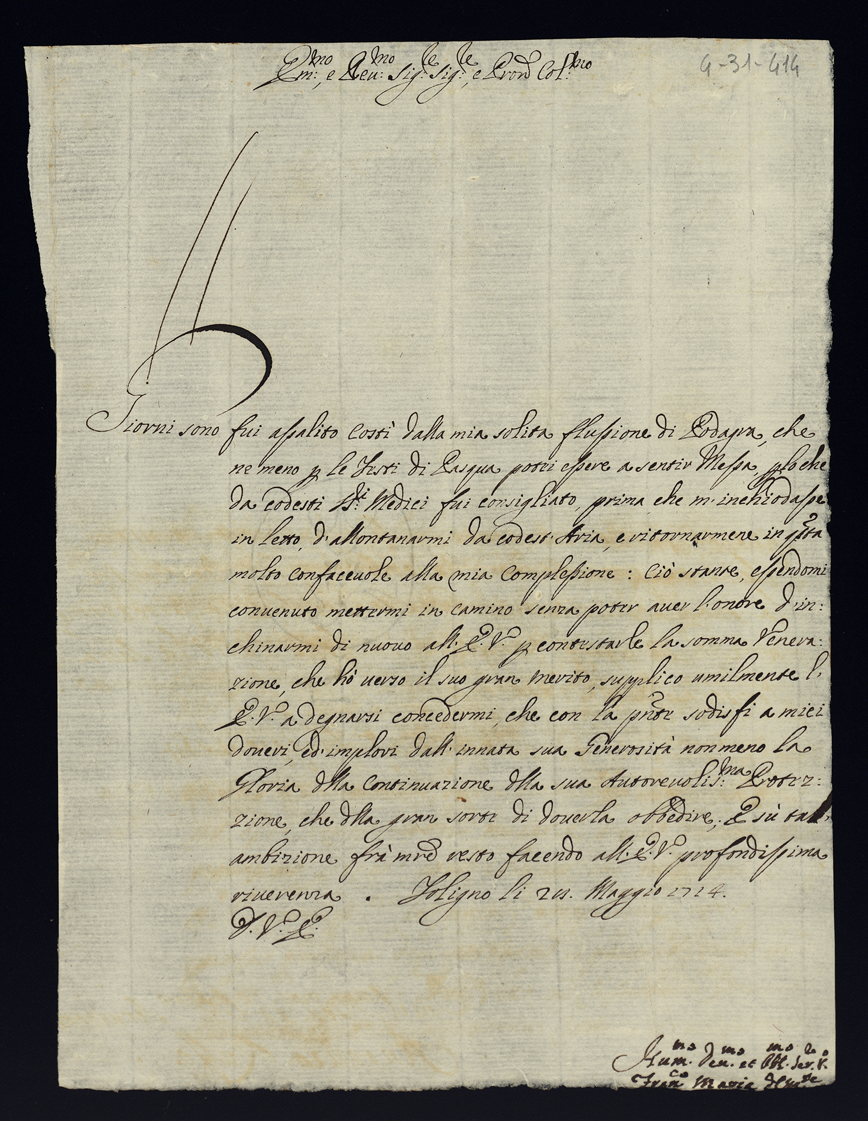 Em:mo, e Reu:mo Sig:re Sig:re, e Pron Col:mo
9-31-414
Giorni sono fui assalito costì dalla mia solita flussione di Podagra, che
ne meno p le Feste di Pasqua potei essere a sentir Messa, p lo che
da codesti SS:ri Medici fui consigliato, prima che m'inchiodasse
in letto, d'allontanarmi da codest'Aria, e ritornarmene in qsta
molto confaceuole alla mia Complessione: Ciò stante, essendomi
conuenuto mettermi in camino senza poter auer l'onore d'in:
chinarmi di nuouo all'E.V. p contestarle la somma Venera:
zione, che hò uerso il suo gran merito, supplico umilmente l'
E.V. a degnarsi concedermi, che con la pnte sodisfi a miei
doueri, ed implori dall'innata sua Generosità non meno la
Gloria dlla Continuazione dlla sua Autoreuolis:ma Protez:
zione, che dlla gran sorte di douerla obbedire; E sù tal
ambizione frà mre resto facendo all'E.V. profondissima
riuerenza. Foligno li Maggio 1714.
D.V.E.
Hum.mo Deu.mo et Obl.mo Ser.re V.o
Fran.co Maria